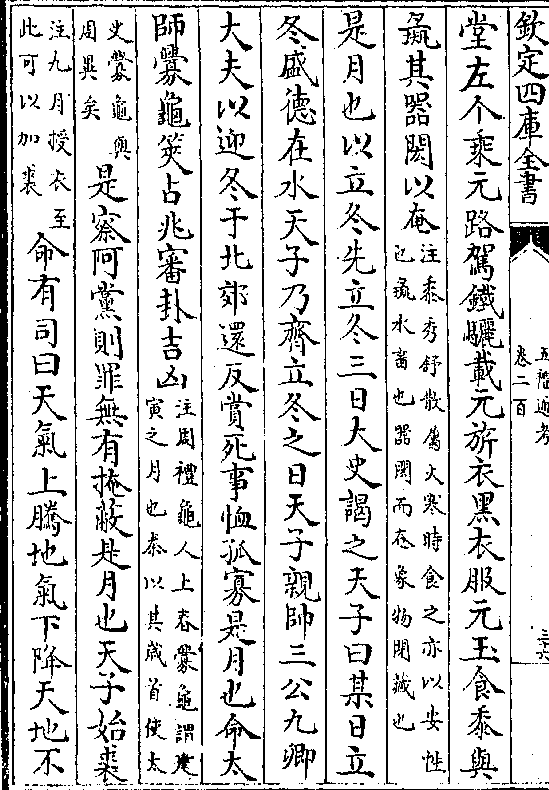 欽定四庫全書
五禮通考
卷二百
三六
堂左个乘元路駕鐵驪載元旂衣黑衣服元玉食黍與
彘其器閎以奄注黍秀舒散屬火寒時食之亦以安性
也彘水畜也器閎而奄象物閉藏也
是月也以立冬先立冬三日大史謁之天子曰某日立
冬盛德在水天子乃齊立冬之日天子親帥三公九卿
大夫以迎冬于北郊還反賞死事恤孤寡是月也命太
師釁龜筴占兆審卦吉凶注周禮龜人上春釁龜謂建
寅之月也秦以其歲首使太
史釁龜與
周異矣
是察阿黨則罪無有掩蔽是月也天子始裘
注九月授衣至
此可以加裘
命有司曰天氣上騰地氣下降天地不